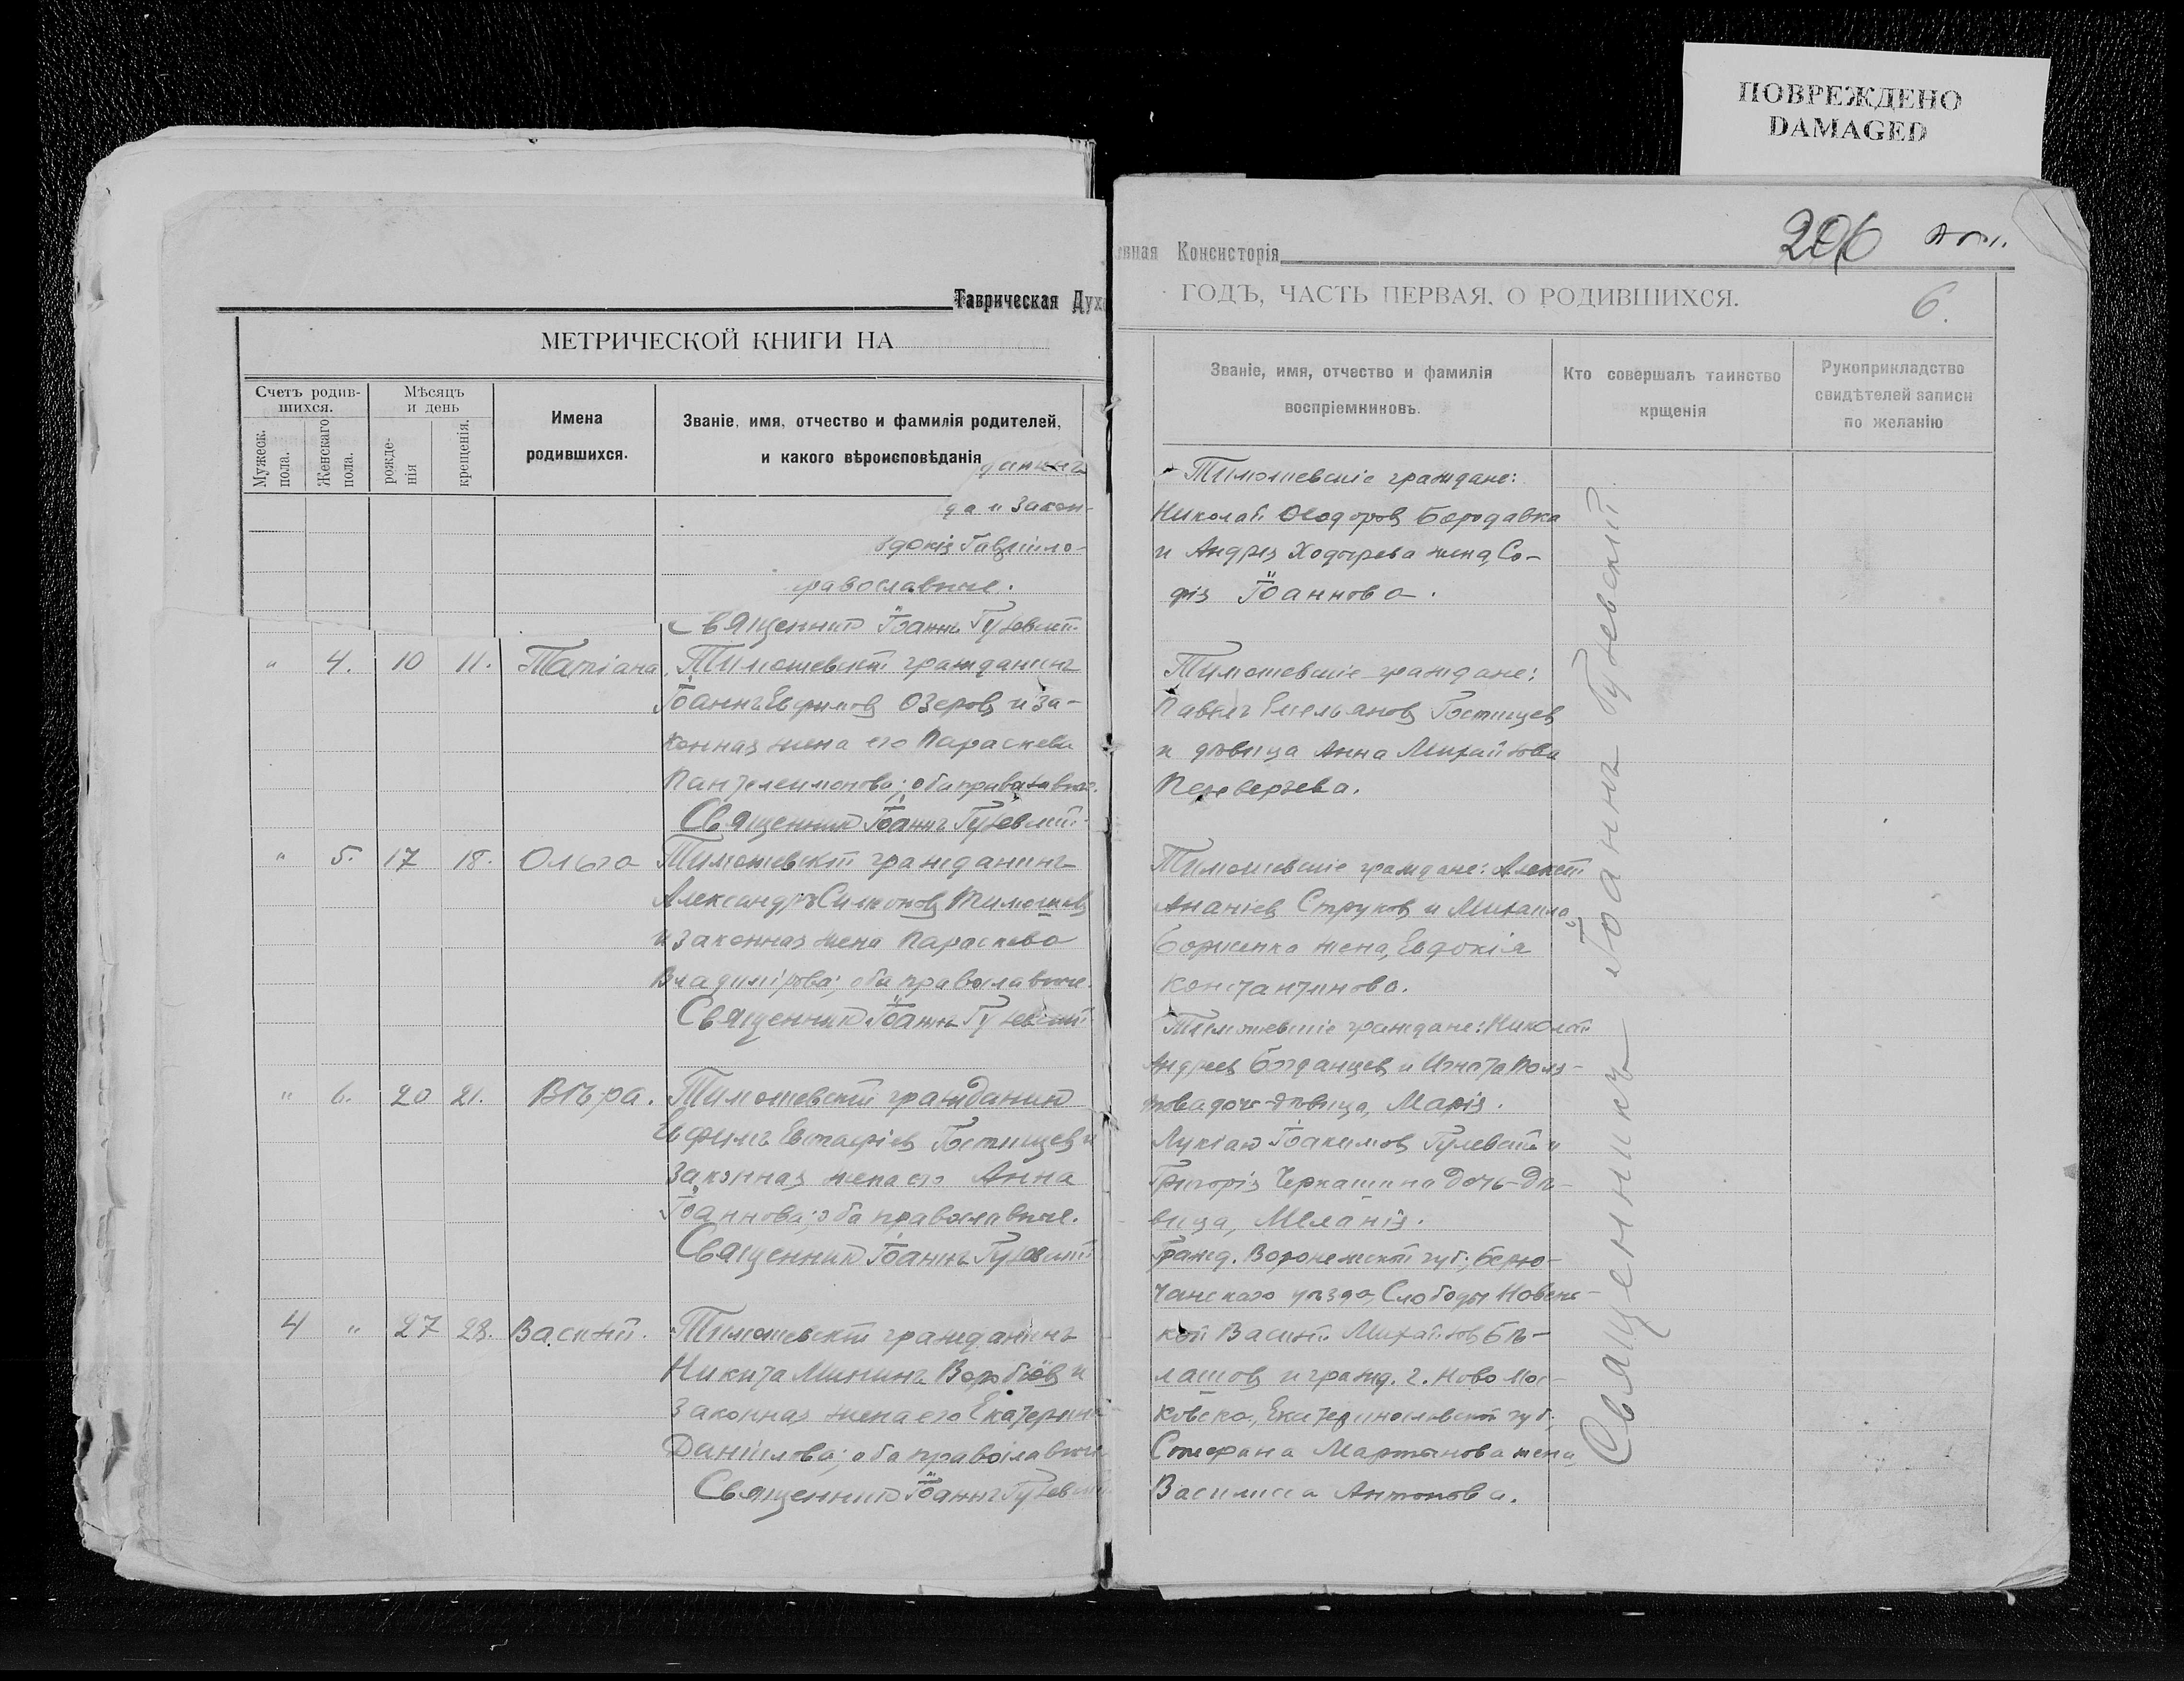 ПОВРЕЖДЕНО
DAMAGED
Таврическая Духо
МЕТРИЧЕСКОЙ КНИГИ НА
Счетъ родив-
шихся.
Мѣсяцъ
и день
Имена
родившихся.
Званіе, имя, отчество и фамилія родителей,
и какого вѣроисповѣданія
Мужеск.
пола.
Женскаго
пола.
рожде-
нія
крещенія.
да и закон-
православные.
Священникъ Іоаннъ
" 4. 10 11. Татіана.
Тимошевскій гражданинъ
Іоаннъ Ефимовъ Озеровъ и за-
конная жена его Параскева
Пантелеимонова; оба православные.
Священникъ Іоаннъ
" 5. 17 18. Ольга
Тимошевскій гражданинъ
Александръ Симоновъ Тимошевъ
и законная жена Параскева
Владимірова; оба православные.
Священникъ Іоаннъ
" 6. 20 21. Вѣра.
Тимошевскій гражданинъ
Ефимъ Евстафіевъ Гостищевъ и
законная жена его Анна
Іоаннова; оба православные.
Священникъ Іоаннъ
4 " 27 28. Василій.
Тимошевскій гражданинъ
Никита Мининъ Воробіёвъ и
законная жена его Екатерина
Даніилова; оба православные
Священникъ Іоаннъ
вная Консисторія
206
ГОДЪ, ЧАСТЬ ПЕРВАЯ, О РОДИВШИХСЯ.
6.
Званіе, имя, отчество и фамилія
воспріемниковъ.
Кто совершалъ таинство
крщенія
Рукоприкладство
свидѣтелей записи
по желанію
Тимошевскіе граждане:
Николай Ѳеодоровъ Бородавка
и Андрея Ходырева жена, Со-
фія Іоаннова.
Тимошевскіе граждане:
Павелъ Емельяновъ Гостищевъ
и дѣвица Анна Михайлова
Переверзева.
Тимошевскіе граждане: Алексѣй
Ананіевъ Струковъ и Михаила
Борженко жена, Евдокія
Константинова.
Тимошевскіе граждане: Николай
Андреевъ Богданцевъ и Игната Поля-
кова дочь-дѣвица, Марія.
Лукіанъ Іоакимовъ и
Григорія Черкашина дочь-дѣ-
вица, Меланія.
Гражд. Воронежской губ., Бирю-
чанскаго уѣзда, Слободы Новень-
кой Василій Михайловъ Бѣ-
лашовъ и гражд. г. Ново мос-
ковска, Екатеринославской губ.
Стефана Мартынова жена,
Василиса Антонова.
Священникъ Іоаннъ